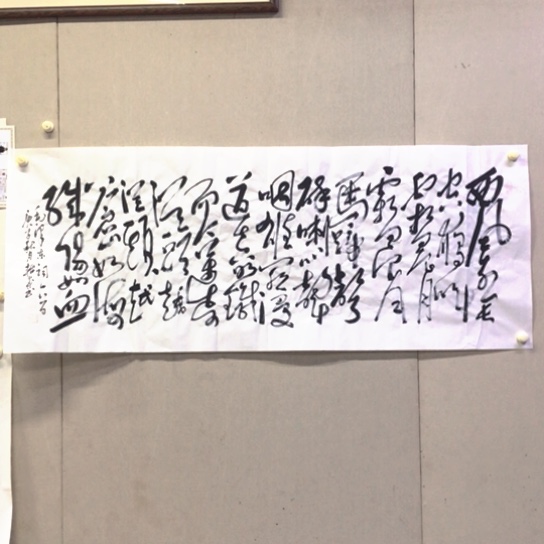 西風烈長
空雁叫
霜晨月
霜晨月
馬蹄聲
碎喇叭聲
咽雄關漫
道真如鐵
而今邁步
從頭越
從頭越
蒼山如海
殘陽如血
毛澤東詞一首
秋月